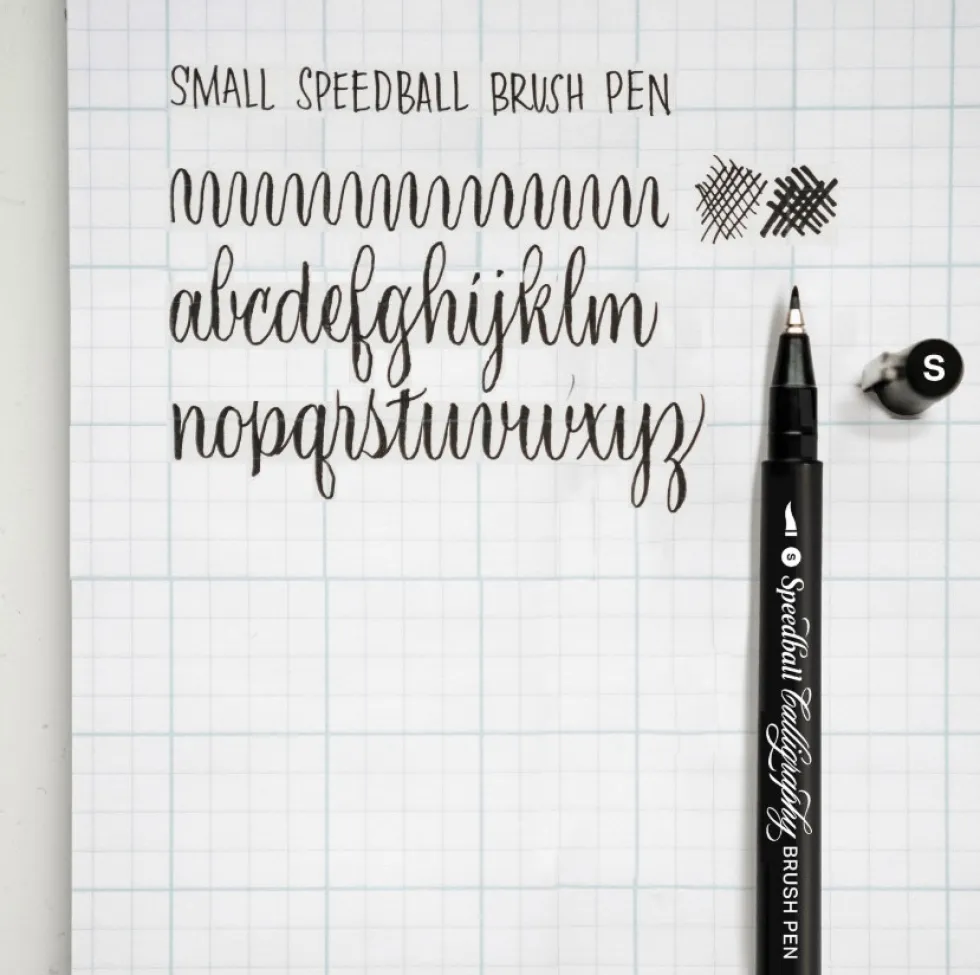 SMALL SPEEDBALL BRUSH PEN
abcdefghijklm
nopqrstuvwxyz
S
S Speedball Calligraphy BRUSH PEN